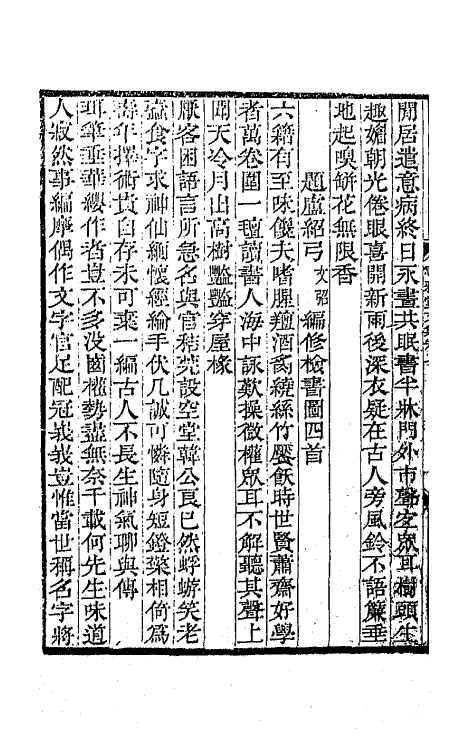 閒居遣意病終日永晝共眠書半牀門外市聲空眾耳樹頭生
趣媚朝光倦眼喜開新雨後深衣疑在古人旁風鈴不語簾垂
地起嗅缾花無限香
題盧紹弓文弨編修檢書圖四首
六籍有至味饞夫嗜腥羶酒肉繞絲竹饜飫時世賢蕭齋好學
者萬卷圍一壇讀書人海中詠歎操微權眾耳不解聽其聲上
聞天冷月山高樹豔豔穿屋椽
厭客困語言所急名與官秸莞設空堂韓公良已然蜉蝣笑老
蠹食字求神仙緬懷經綸手伏几誠可憐隨身短鐙檠相倚為
壽年擇術貴自存未可棄一編古人不長生神氣聊與傳
珥筆垂華纓作者豈不多沒齒權勢盡無奈千載何先生味道
人寂然事編摩偶作文字官足配冠峩峩豈惟當世稱名字將